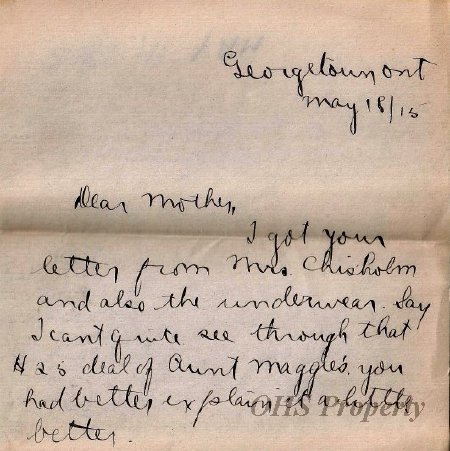 Georgetown Ont
May 18/15
Dear Mother,
I got your
letter from Mrs. Chisholm
and also the underwear. Say
I cant quite see through that
deal of Aunt Maggie's. you
had better explain it a little
better.
OHS Property